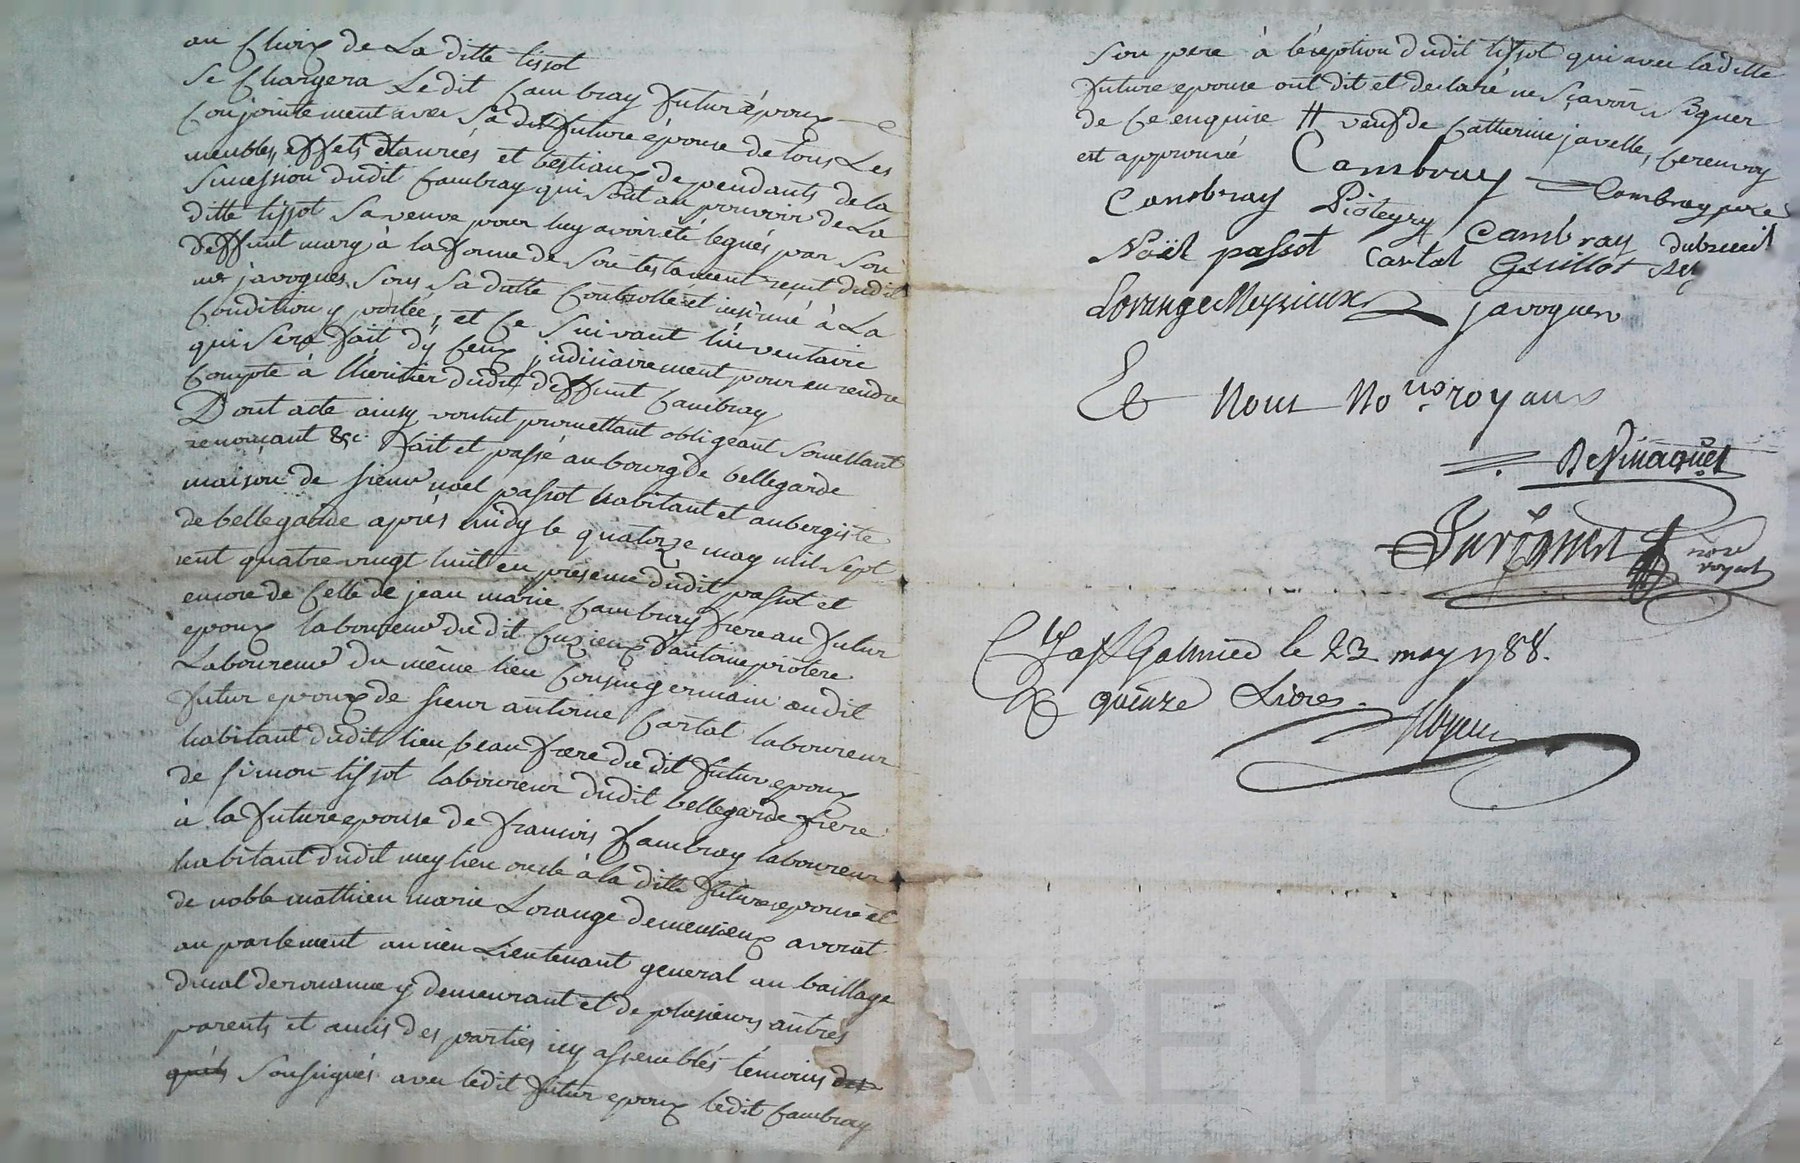 au Choix de La ditte tissot
Se Chargera Ledit Cambray futur époux
Conjointement avec Sa ditte future épouse de tous Les
meubles, effets danrées et bestiaux dependants de la
Succession dudit Cambray qui Sont au pouvoir de La
ditte tissot Sa veuve pour luy avoir été legués par Son
deffunt mary à la forme de Son testament reçut dudit
me javogues, Sous Sa datte Controllé et insinué à La
Condition y portée, et Ce Suivant l'inventaire
qui Sera fait d'y Ceux judiciairement pour en rendre
Compte à l'heritier dudit deffunt Cambray
Dont acte ainsy voulut promettant obligeant Soumettant
renonçant &c. fait et passé au bourg de bellegarde
maison de Sieur noel passot habitant et aubergiste
de bellegarde après midy le quatorze may mil Sept
cent quatre vingt huit en presence dudit passot et
encore de Celle de jean marie Cambray frere au futur
epoux laboureur du dit Cuzieux d'antoine piotere
Laboureur du même lieu Cousin germain audit
futur epoux de Sieur antoine Cartal laboureur
habitant dudit lieu, beau frere du dit futur epoux
de Simon tissot laboureur dudit bellegarde frere
à la future epouse de francois Cambray laboureur
habitant dudit meylieu oncle à la ditte future epouse et
de noble mathieu marie Lorange demeusieux avocat
au parlement ancien Lieutenant general au baillage
ducal de rouanne y demeurant et de plusieurs autres
parents et amis des parties icy assemblés témoins
Soussignés avec ledit futur epoux ledit Cambray
Son pere à l'éxeption dudit tissot qui avec laditte
future epouse ont dit et declaré ne Sçavoir Signer
de Ce enquise # veuf de Catherine javelle, Ce renvoy
est approuvé Cambray Cambray pere
Cambray Pioteyry Cambray dubreuil
Noël passot Cartal Guillot
Lorange Meyzieux javogues
Et Nous No.res royaux
not.re royal
A St Galmier le 23 may 1788.
R quinze Livres.